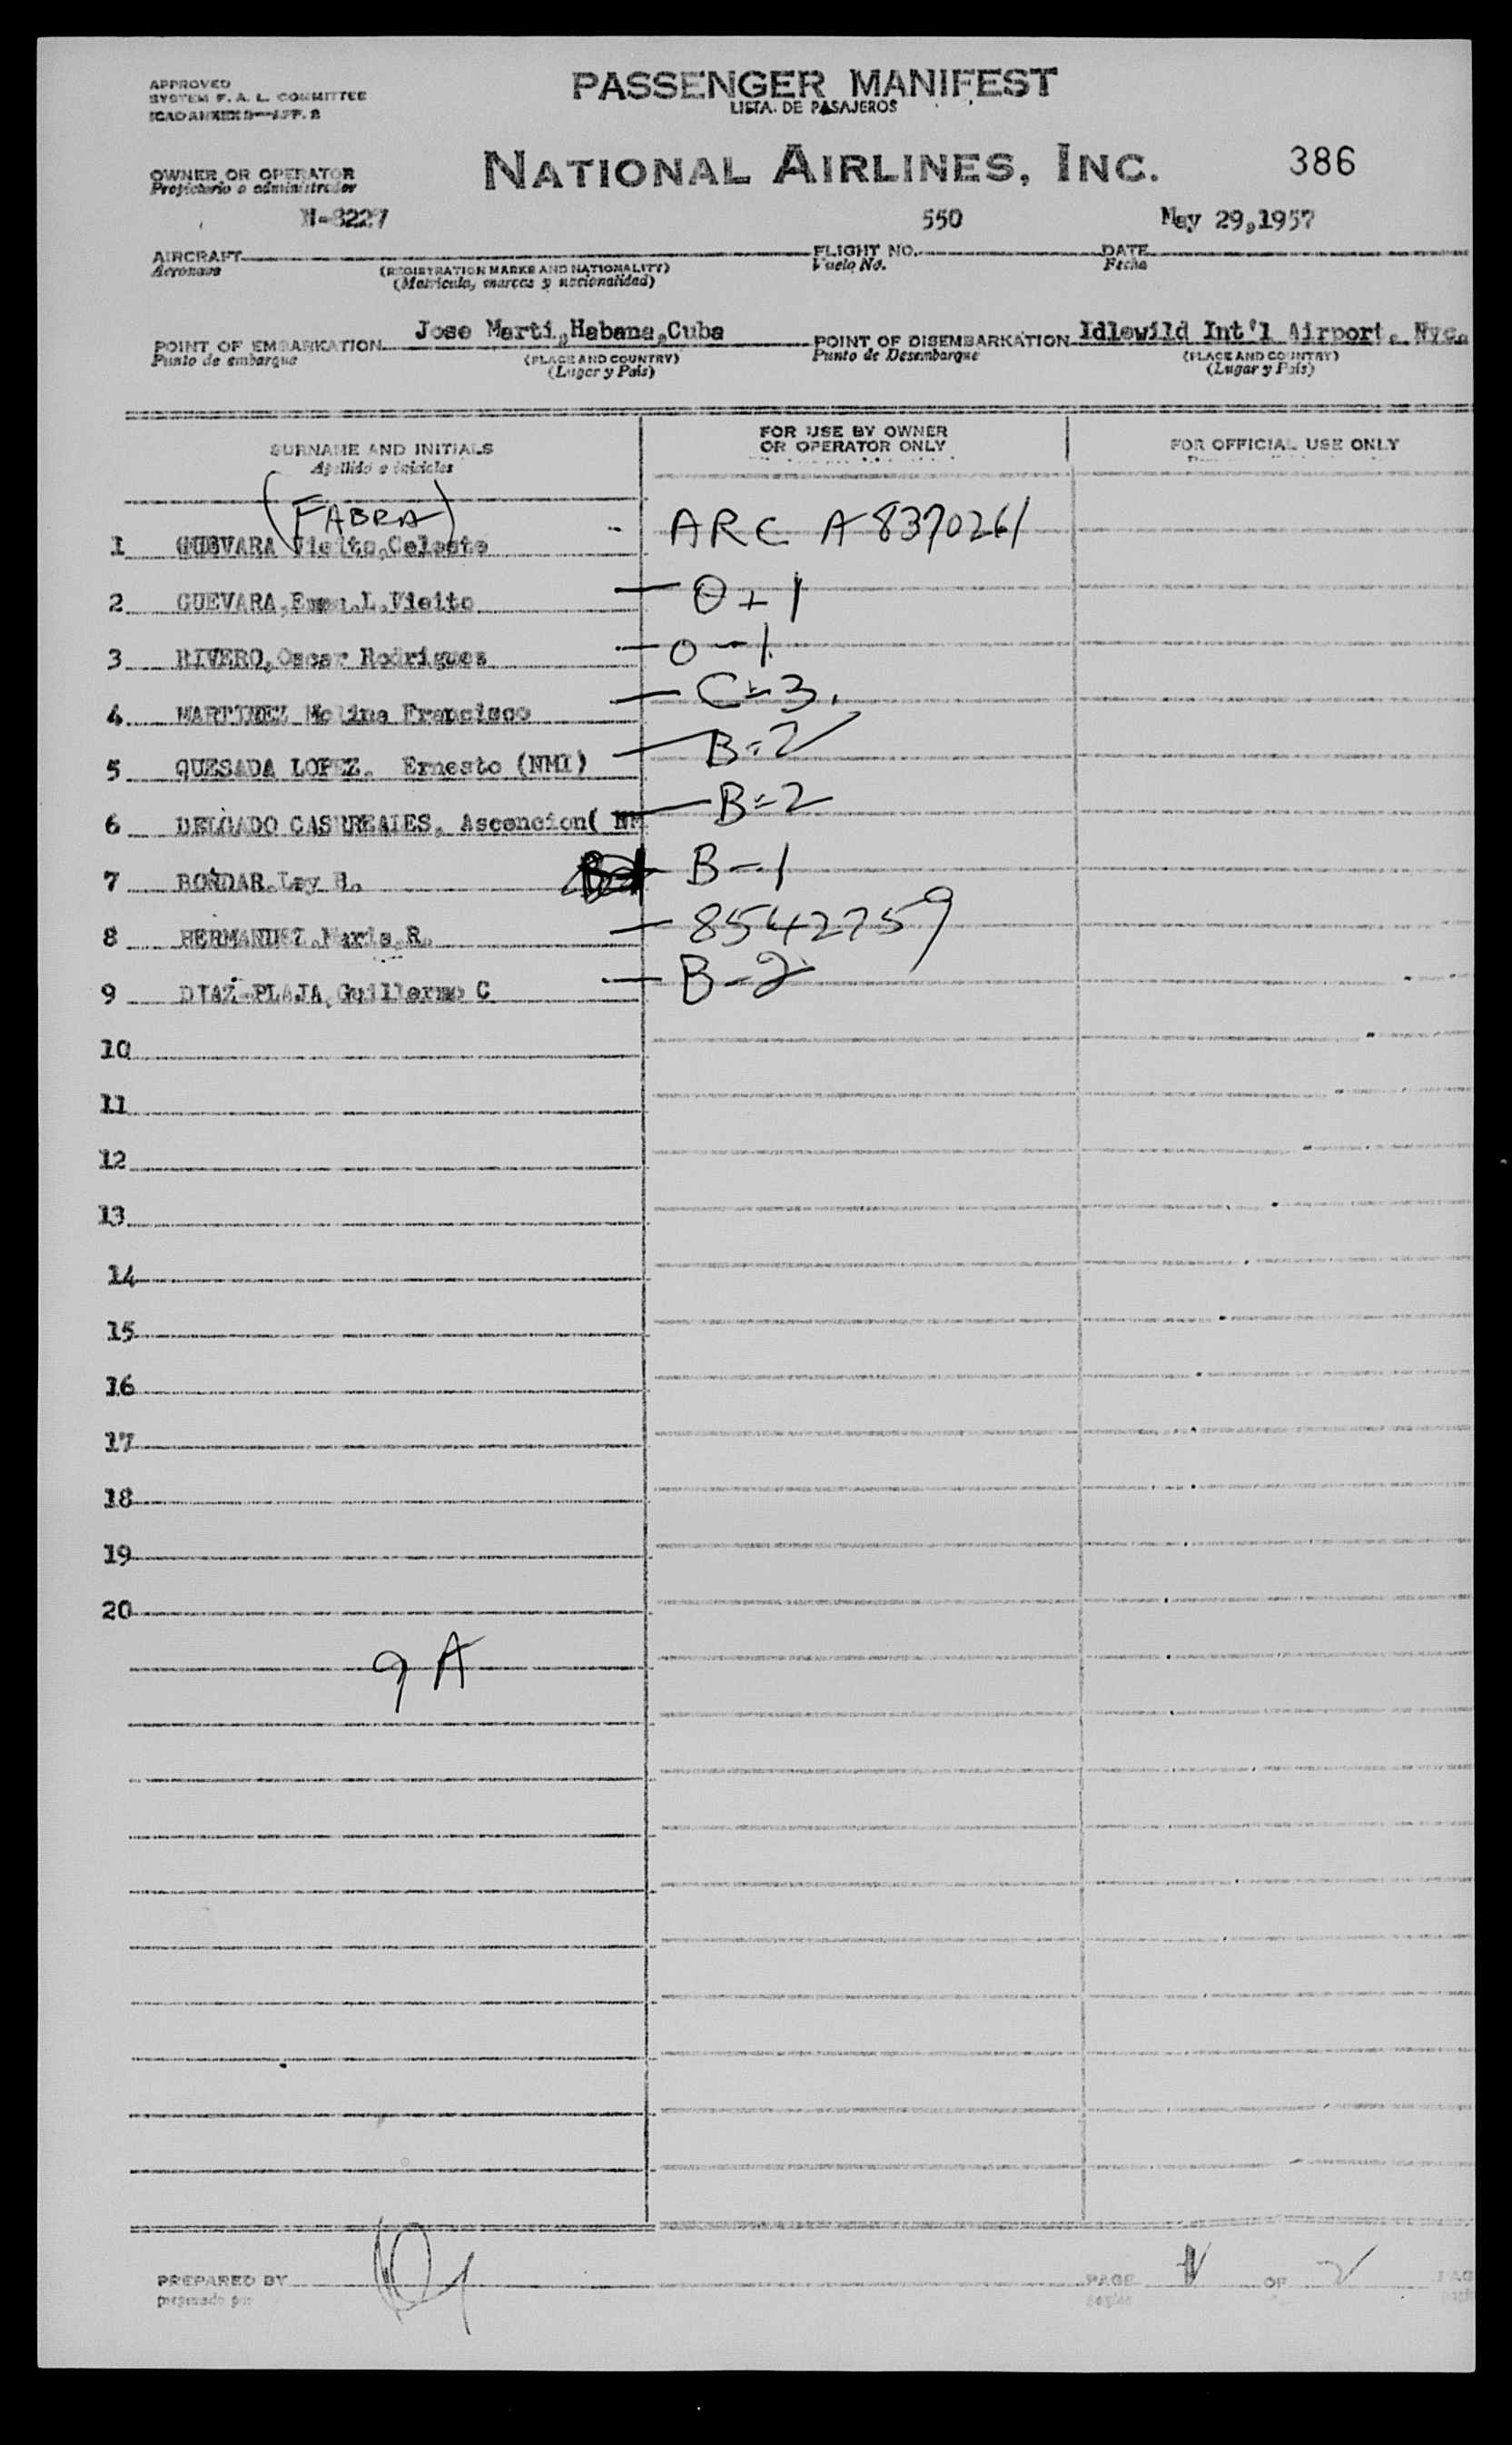 APPROVED
SYSTEM F. A. L. COMMITTEE
ICAO ANNEX 9—APP. 2
PASSENGER MANIFEST
LISTA DE PASAJEROS
OWNER OR OPERATOR
Propietario o administrador
NATIONAL AIRLINES, INC.
386
N-8227
550
May 29,1957
AIRCRAFT
Aeronave
(REGISTRATION MARKS AND NATIONALITY)
(Matricula, marcas y nacionalidad)
FLIGHT NO.
Vuelo No.
DATE
Fecha
POINT OF EMBARKATION Jose Marti,Habana,Cuba
Punto de embarque
(PLACE AND COUNTRY)
(Lugar y Pais)
POINT OF DISEMBARKATION Idlewild Int'l Airport. Nyc.
Punto de Desembarque
(PLACE AND COUNTRY)
(Lugar y Pais)
SURNAME AND INITIALS
Apellido e iniciales
FOR USE BY OWNER
OR OPERATOR ONLY
FOR OFFICIAL USE ONLY
(FABRA)
1 GUEVARA Vieito,Celeste - ARC A 8370261
2 GUEVARA, L.Vieito — O-1
3 RIVERO,Oscar Rodrigues — O-1
4 MARTINEZ Molina Francisco — C-3.
5 QUESADA LOPEZ. Ernesto (NMI) — B-2
6 DELGADO Ascencion( — B=2
7 BONDAR. H. B-1
8 HERMANDEZ.Maria,R. — 8542759
9 DIAZ-PLAJA,Guillermo C — B-2
10
11
12
13
14
15
16
17
18
19
20
9 A
PREPARED BY
preparado por
PAGE OF 2